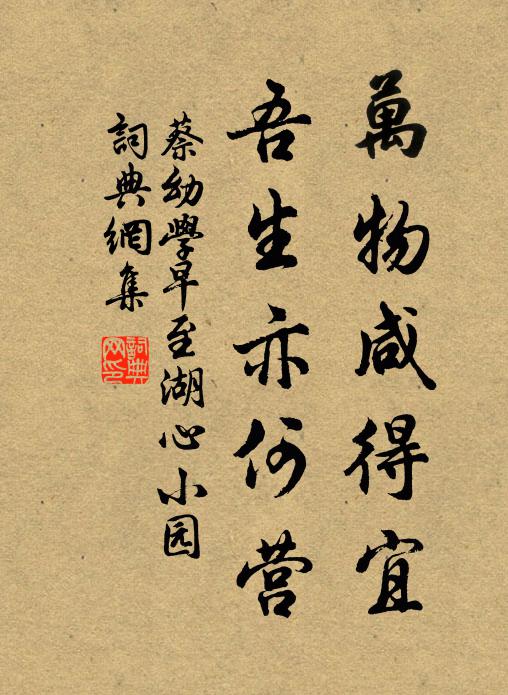 萬物咸得宜
吾生亦何营
蔡幼學早至湖心小园
詞典網集
詞典
网印